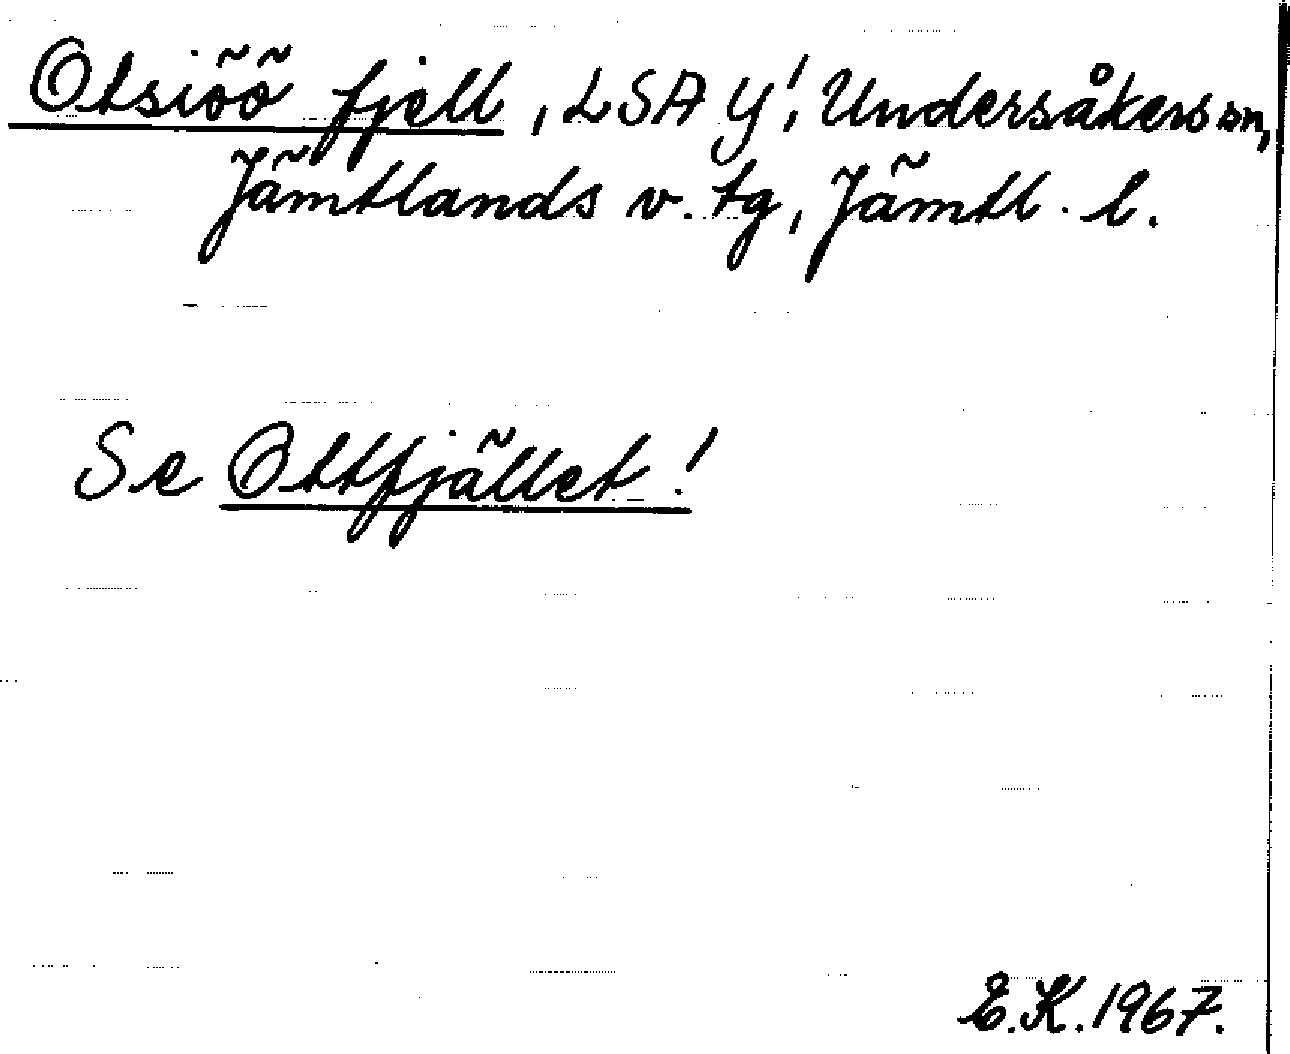 Otsiöö fjell, LSA Y!, Undersåkers sn,
Jämtlands v. tg, Jämtl. l.
Se Ottfjället!
E.K. 1967.